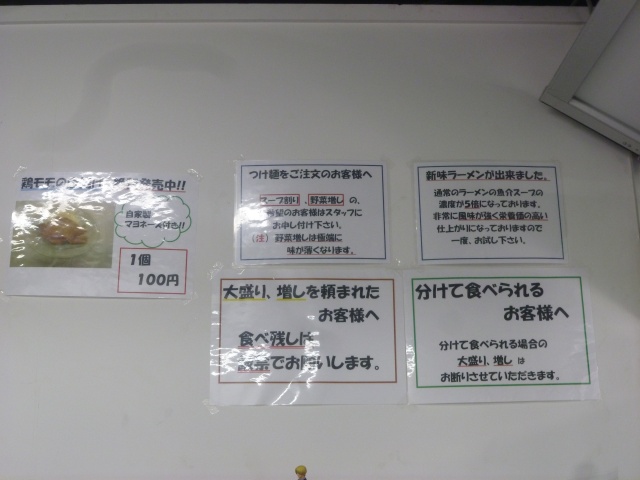 鶏モモの 発売中!!
自家製
マヨネーズ付き!!
1個
100円
つけ麺をご注文のお客様へ
スープ割り、野菜増し の、
希望のお客様はスタッフに
お申し付け下さい。
(注) 野菜増しは極端に
味が薄くなります。
新味ラーメンが出来ました。
通常のラーメンの魚介スープの
濃度が5倍になっております。
非常に風味が強く栄養価の高い
仕上がりになっておりますので
一度、お試し下さい。
大盛り、増しを頼まれた
お客様へ
食べ残しは
厳禁でお願いします。
分けて食べられる
お客様へ
分けて食べられる場合の
大盛り、増し は
お断りさせていただきます。